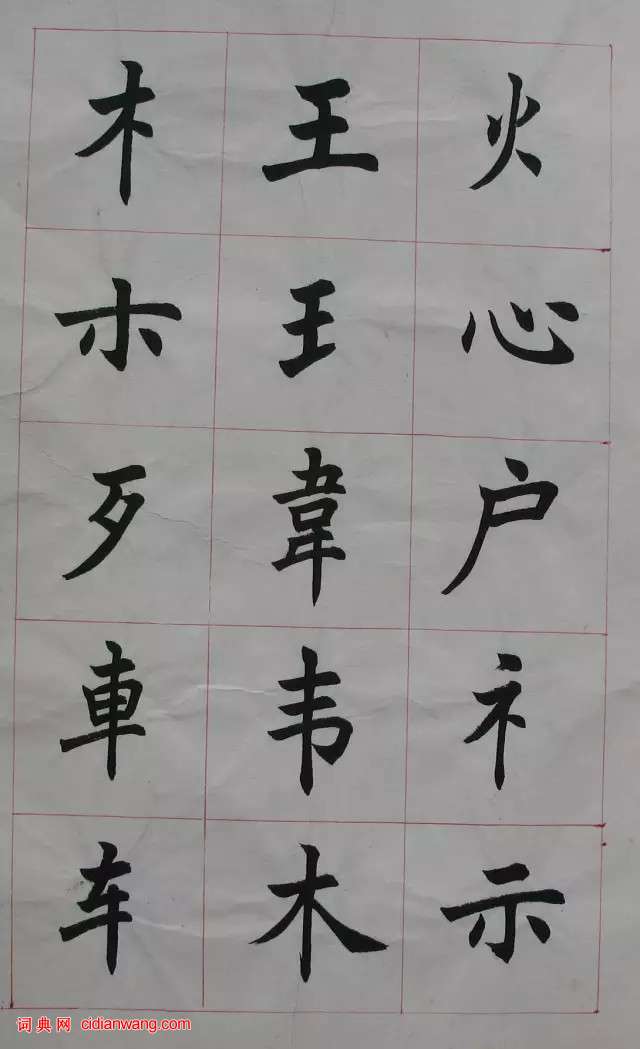 火心户礻示
王王韋韦木
木朩歹車车
词典网 cidianwang.com